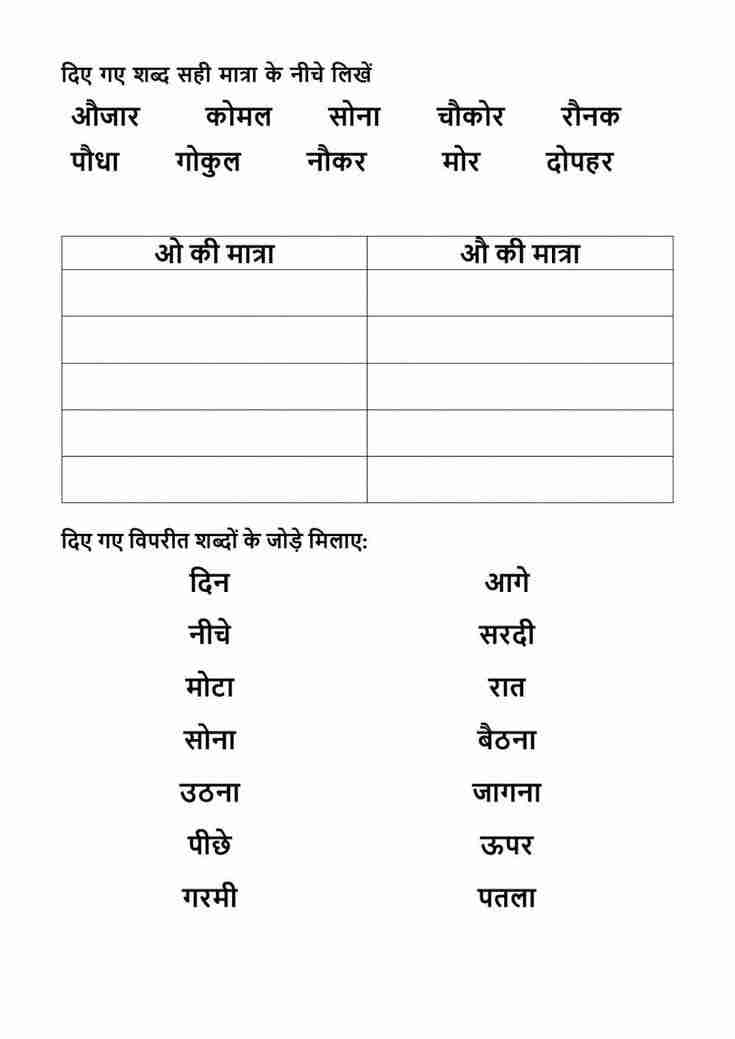 दिए गए शब्द सही मात्रा के नीचे लिखें
औजार कोमल सोना चौकोर रौनक
पौधा गोकुल नौकर मोर दोपहर
ओ की मात्रा औ की मात्रा
दिए गए विपरीत शब्दों के जोड़े मिलाए:
दिन आगे
नीचे सरदी
मोटा रात
सोना बैठना
उठना जागना
पीछे ऊपर
गरमी पतला